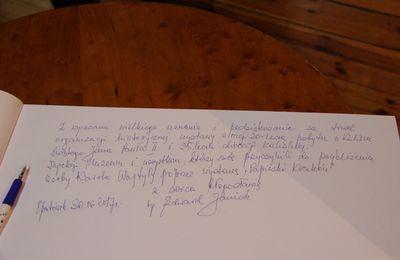 Z wyrazami wielkiego uznania i podziękowania za trud
organizacji historycznej wystawy z racji 20-lecia pobytu w Kaliszu
świętego Jana Pawła II i 25-lecia diecezji kaliskiej.
Dyrekcji Muzeum i wszystkim, którzy się przyczynili do przybliżenia
osoby Karola Wojtyły poprzez wystawę "Papieskie
z serca błogosławię
bp Edward Janiak
30.06.2017r.